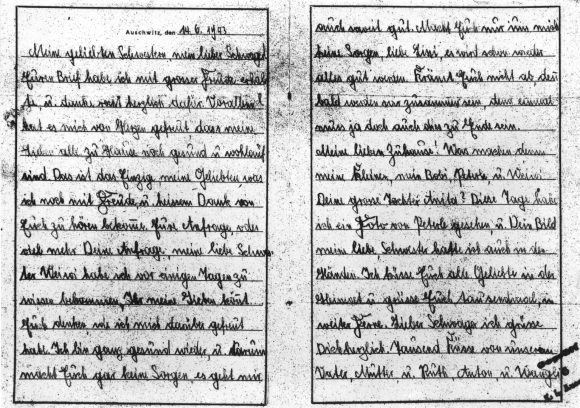 Auschwitz, den 14.6.1943
Meine geliebten Schwestern, mein lieber Schwager!
Euren Brief habe ich mit grosser Freude erhal-
te, u. danke recht herzlich dafür Vorallem
hat es mich von Herzen gefreut dass meine
Lieben alle zu Hause noch gesund u. wohlauf
sind. Das ist das Einzig, meine Geliebten, was
ich noch mit Freude, u. heissem Dank von
Euch zu hören bekomme. Eure Anfrage, oder
viel mehr Deine Anfrage, meine liebe Schwes-
ter habe ich vor einigen Tagen zu
wissen bekommen. Ihr meine Lieben könnt
Euch denken wie ich mich darüber gefreut
habe. Ich bin ganz gesund wieder, u. darum
macht Euch gar keine Sorgen, es geht mir
auch soweit gut. Macht Euch nur um mich
keine Sorgen, liebe es wird schon wieder
alles gut werden. Kränkt Euch nicht ab, den
bald werden wir zusammen sein, denn einmal
muss ja doch auch dies zu Ende sein.
Meine lieben Zuhause! Was machen denn
mein Kleinen, mein Bobi, u.
Deine grosse Tochter Anita? Diese Tage habe
ich ein Foto von gesehen, u. Dein Bild
meine liebe Schwester hatte ich auch in den
Händen. Ich küsse Euch alle Geliebte in der
Heimat u. grüsse Euch tausendmal, in
weiter Ferne. Lieber Schwager ich grüsse
Dich herzlich. Tausend Küsse von unseren
Vater, Mutter u. Ruth, Anton, u.